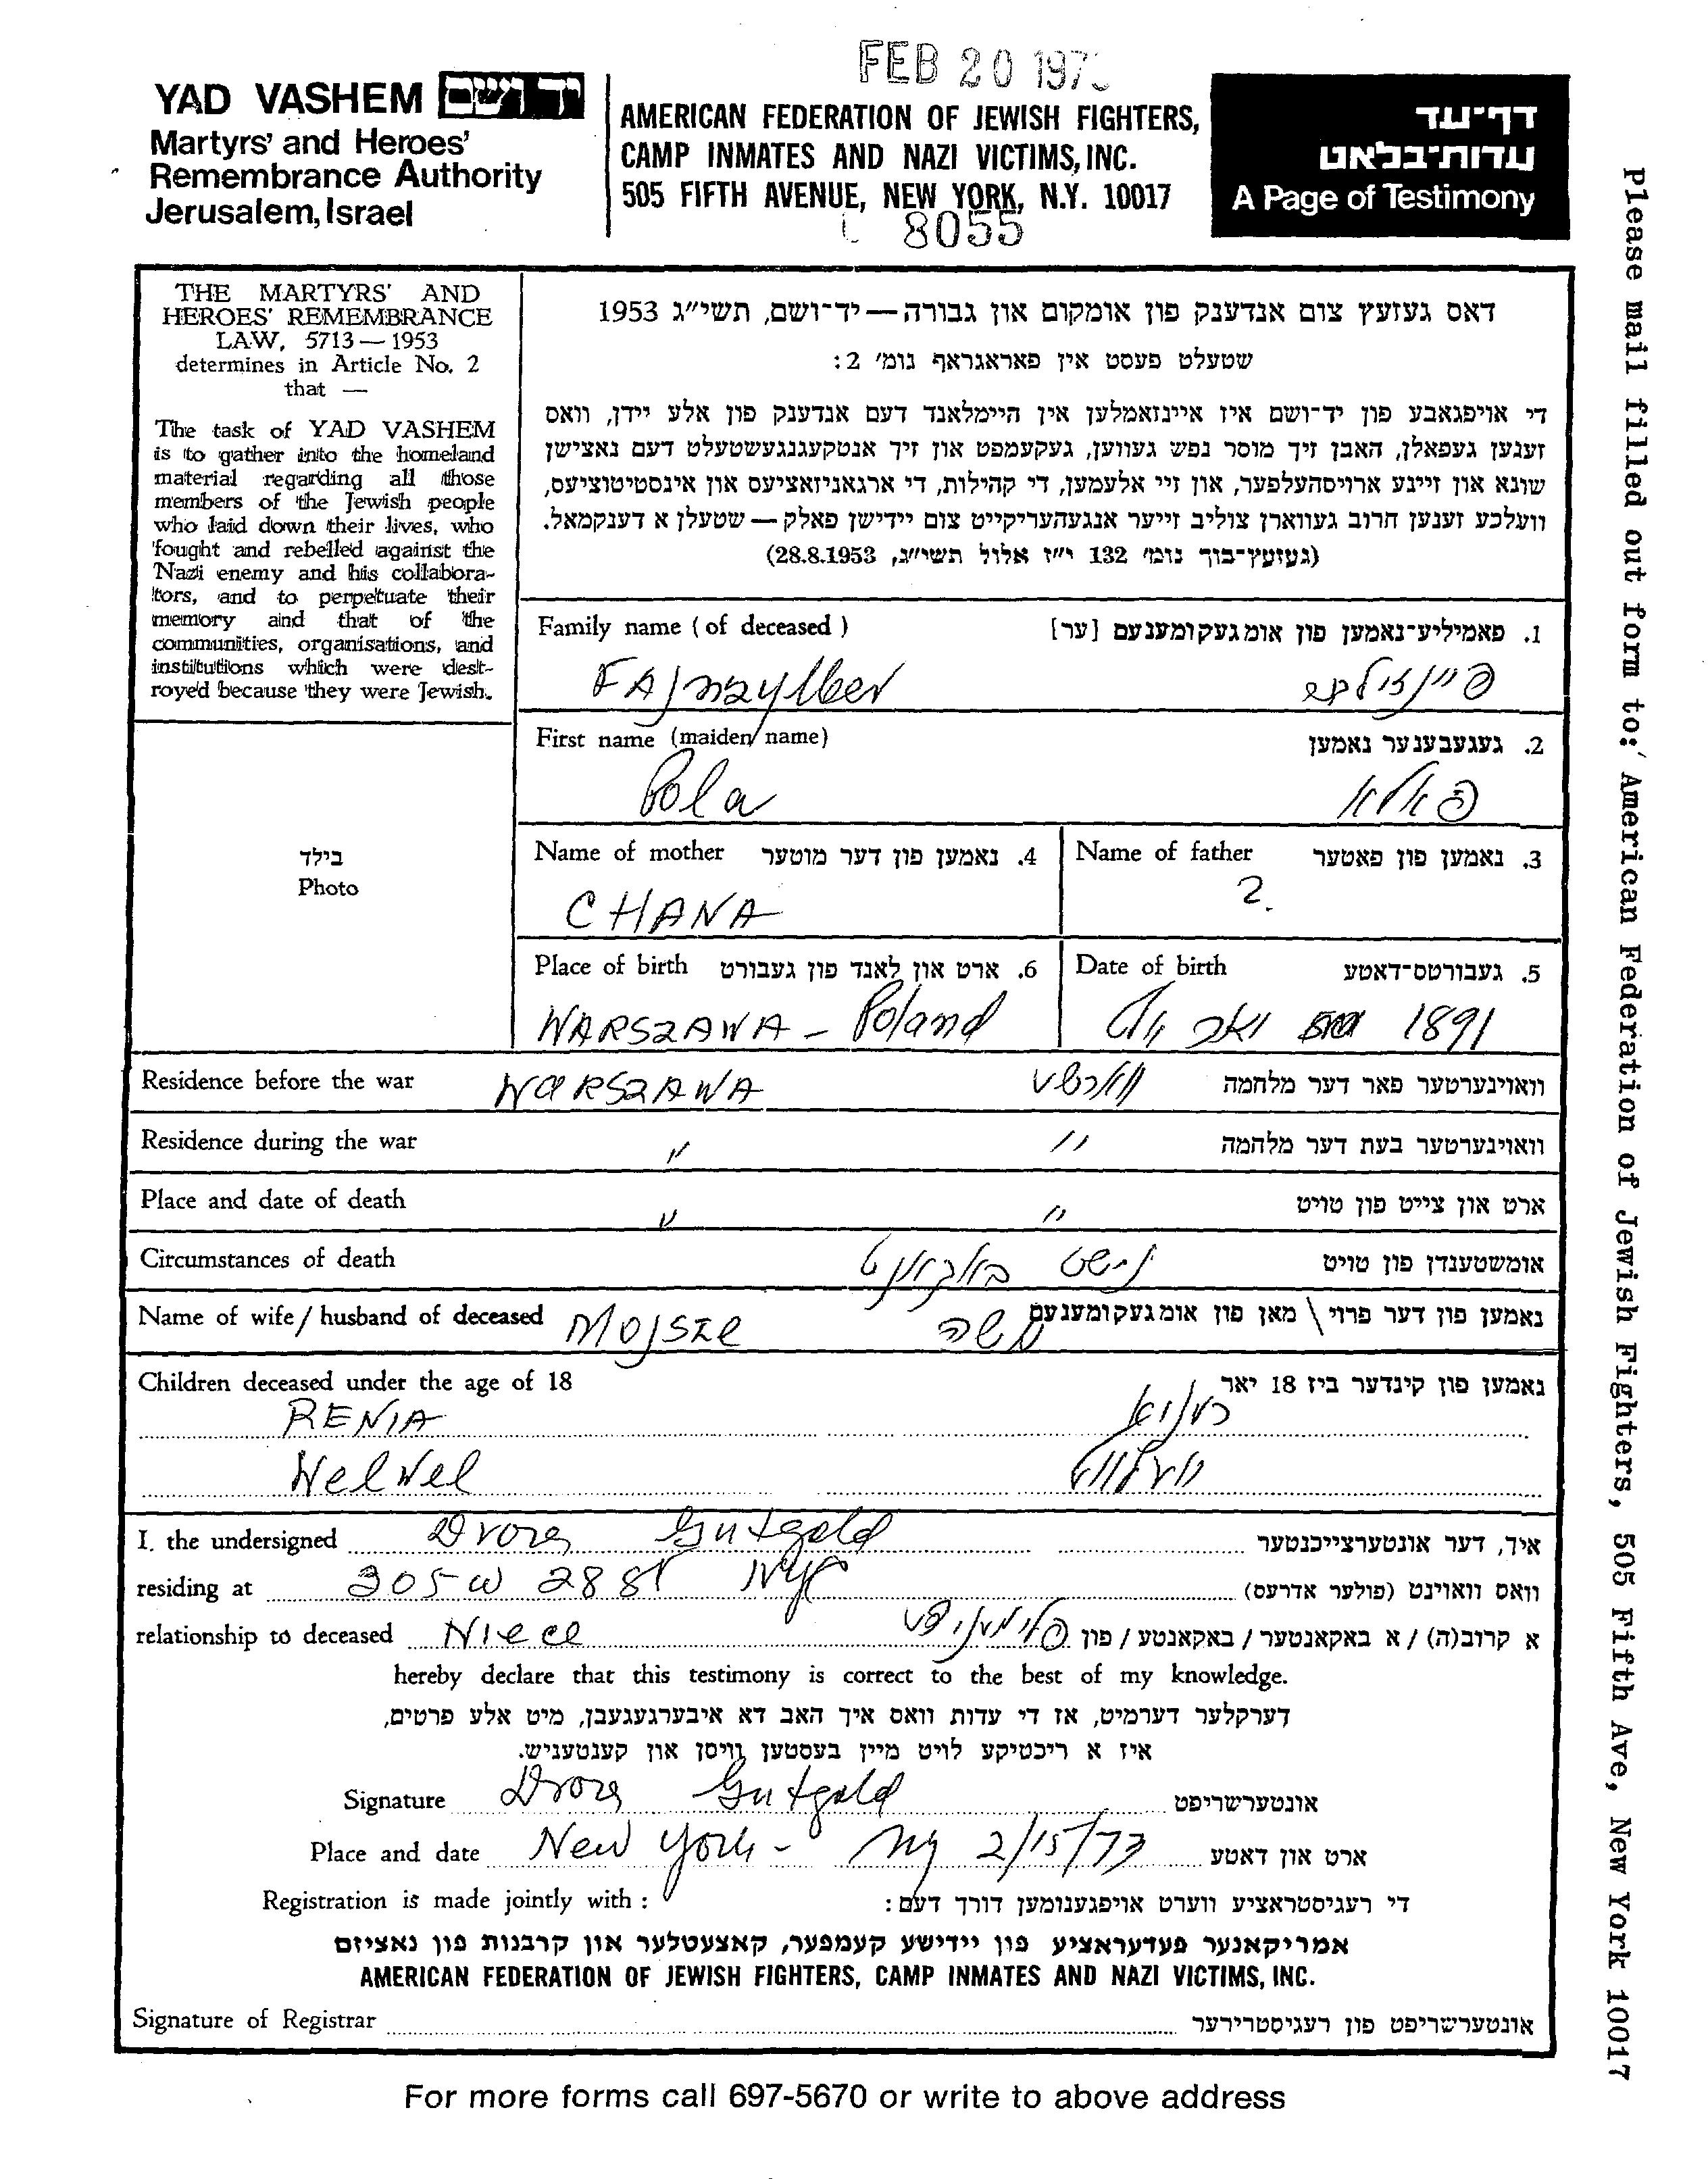 FEB 20 197
YAD VASHEM יד ושם
Martyrs' and Heroes'
Remembrance Authority
Jerusalem, Israel
AMERICAN FEDERATION OF JEWISH FIGHTERS,
CAMP INMATES AND NAZI VICTIMS, INC.
505 FIFTH AVENUE, NEW YORK, N.Y. 10017
8055
דף־עד
עדות־בלאט
A Page of Testimony
THE MARTYRS' AND
HEROES' REMEMBRANCE
LAW, 5713 — 1953
determines in Article No. 2
that —
The task of YAD VASHEM
is to gather into the homeland
material regarding all those
members of the Jewish people
who laid down their lives, who
fought and rebelled against the
Nazi enemy and his collabora-
tors, and to perpetuate their
memory and that of the
communities, organisations, and
institutions which were dest-
royed because they were Jewish.
דאס געזעץ צום אנדענק פון אומקום און גבורה — יד־ושם, תשי״ג 1953
שטעלט פעסט אין פאראגראף נומ׳ 2:
די אויפגאבע פון יד־ושם איז איינזאמלען אין היימלאנד דעם אנדענק פון אלע יידן, וואס
זענען געפאלן, האבן זיך מוסר נפש געווען, געקעמפט און זיך אנטקעגנגעשטעלט דעם נאצישן
שונא און זיינע ארויסהעלפער, און זיי אלעמען, די קהילות, די ארגאניזאציעס און אינסטיטוציעס,
וועלכע זענען חרוב געווארן צוליב זייער אנגעהעריקייט צום יידישן פאלק — שטעלן א דענקמאל.
(געזעץ־בוך נומ׳ 132 י״ז אלול תשי״ג, 28.8.1953)
Family name (of deceased) 1. פאמיליע־נאמען פון אומגעקומענעם [ער]
FAJnzylber פיינזילבער
First name (maiden name) 2. געגעבענער נאמען
Pola פאלא
בילד
Photo
Name of mother 4. נאמען פון דער מוטער Name of father 3. נאמען פון פאטער
CHANA ?.
Place of birth 6. ארט און לאנד פון געבורט Date of birth 5. געבורטס־דאטע
WARSZAWA - Poland 1891
Residence before the war WARSZAWA ווארשע וואוינערטער פאר דער מלחמה
Residence during the war " " וואוינערטער בעת דער מלחמה
Place and date of death " " ארט און צייט פון טויט
Circumstances of death נישט באקאנט אומשטענדן פון טויט
Name of wife / husband of deceased MOJSZE משה נאמען פון דער פרוי \ מאן פון אומגעקומענעם
Children deceased under the age of 18 נאמען פון קינדער ביז 18 יאר
RENIA רעניא
Welwel וועלוול
I. the undersigned Drora Gutgold איך, דער אונטערצייכנטער
residing at 305 W 28 St NYC וואס וואוינט (פולער אדרעס)
relationship to deceased Niece פלימעניצע א קרוב(ה) / א באקאנטער / באקאנטע / פון
hereby declare that this testimony is correct to the best of my knowledge.
דערקלער דערמיט, אז די עדות וואס איך האב דא איבערגעגעבן, מיט אלע פרטים,
איז א ריכטיקע לויט מיין בעסטען וויסן און קענטעניש.
Signature Drora Gutgold אונטערשריפט
Place and date New York - Ny 2/15/73 ארט און דאטע
Registration is made jointly with : די רעגיסטראציע ווערט אויפגענומען דורך דעם :
אמריקאנער פעדעראציע פון יידישע קעמפער, קאצעטלער און קרבנות פון נאציזם
AMERICAN FEDERATION OF JEWISH FIGHTERS, CAMP INMATES AND NAZI VICTIMS, INC.
Signature of Registrar אונטערשריפט פון רעגיסטרירער
For more forms call 697-5670 or write to above address
Please mail filled out form to: American Federation of Jewish Fighters, 505 Fifth Ave, New York 10017